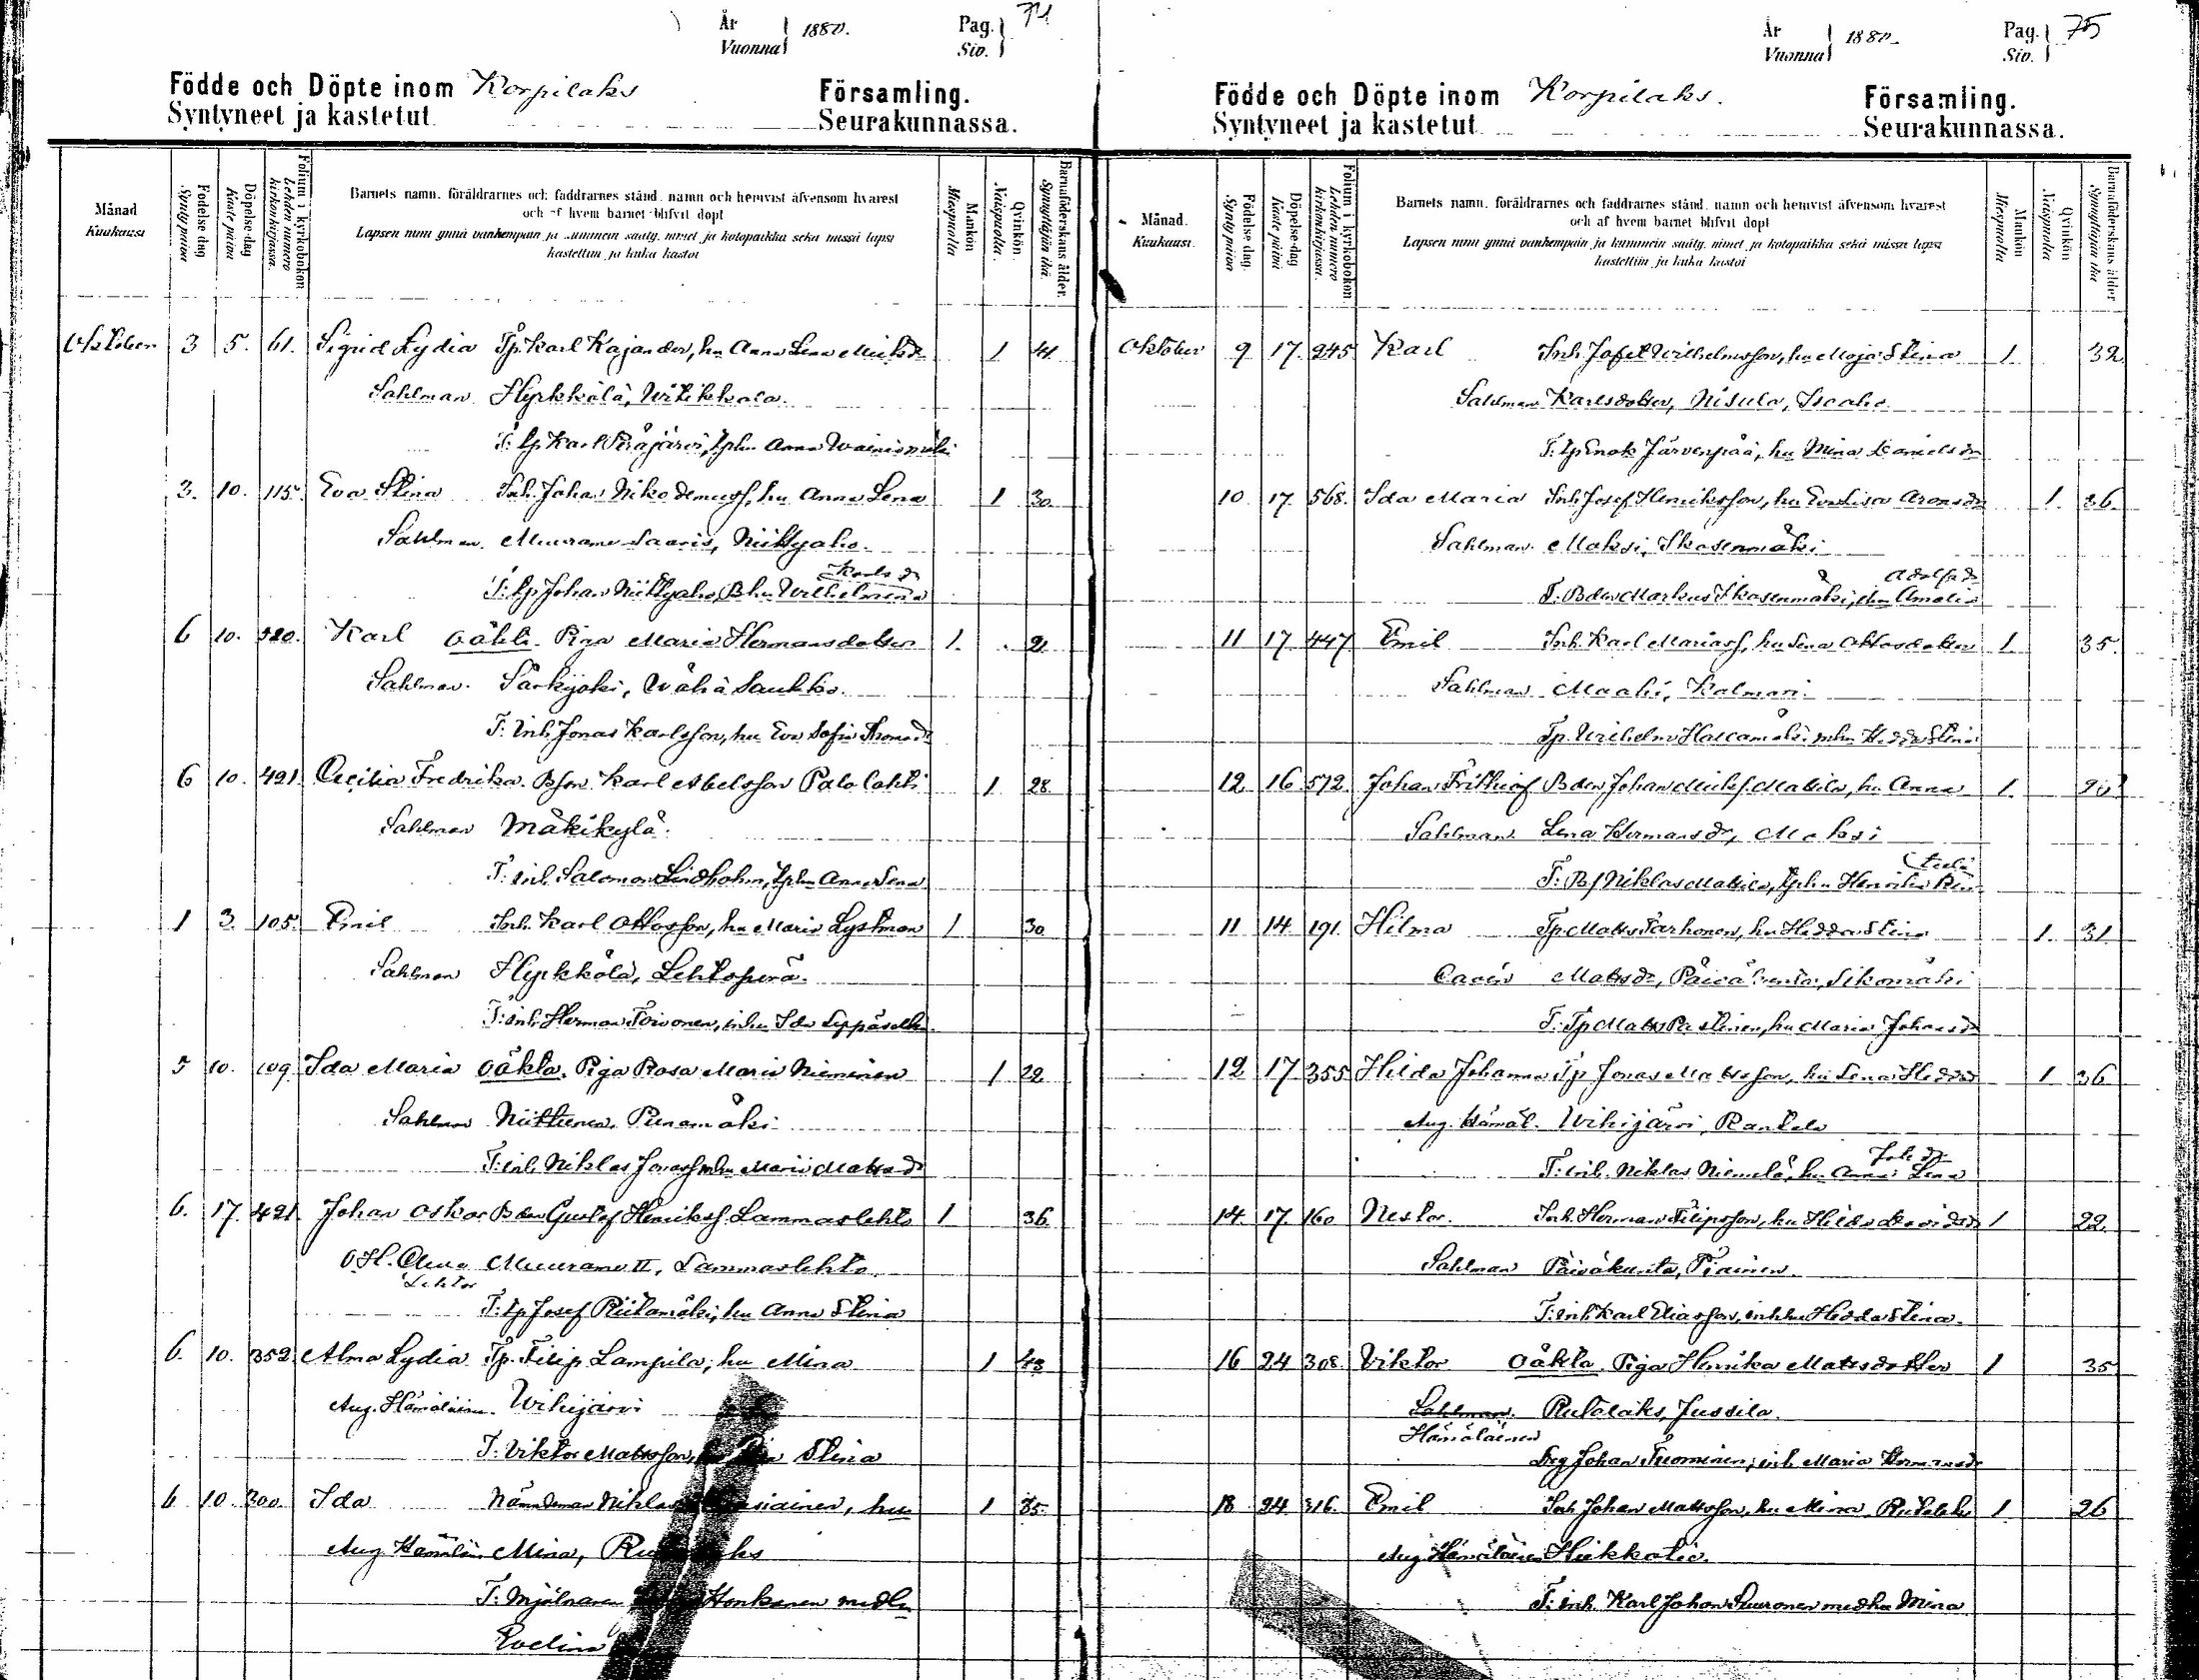 År Vuonna 1880. Pag. Siv. 74
Födde och Döpte inom Korpilaks Församling.
Syntyneet ja kastetut Seurakunnassa.
Månad Kuukausi
Födelse dag Synty päivä
Döpelse-dag Kaste päivä
Folium i kyrkoboken Lehden numero kirkonkirjassa.
Barnets namn, föräldrarnes och faddrarnes stånd, namn och hemvist äfvensom hvarest
och af hvem barnet blifvit döpt
Lapsen nimi ynnä vanhempain ja kummein sääty, nimet ja kotopaikka sekä missä lapsi
kastettiin ja kuka kastoi
Mankön Miespuolia
Qvinkön Naispuolia.
Barnaföderskans ålder. Synnyttäjän ikä.
Oktober 3 5. 61. Sigrid Lydia Tp. Karl Kajander, hu Anna Lena 1 41
Sahlman Hyrkkälä, Witikkala.
T: Lp Karl Anna
3. 10. 115. Eva Stina Inh. Johan Nikodemuss, hu Anna Lena 1 30.
Sahlman. Muurame Saaris, Niittyaho.
Karls dr
T: Lp Johan Niittyaho, B hu Wilhelmina
6 10. 520. Karl oäkta. Piga Maria Hermansdotter 1. 21
Sahlman. Särkijoki, Wähä Saukko.
T: Inh Jonas Karlsson, hu Eva Sofia
6 10. 421. Cecilia Fredrika. Bson Karl Abelsson Palolahti 1 28.
Sahlman Mäkikylä.
T: inh. Salomon Lindholm, Anna Lena
1 3. 105. Emil Inh. Karl Ottosson, hu Maria Lystman 1 30
Sahlman Hyrkkälä, Lehtoperä.
T: inh. Herman Toivonen, Ida
5 10. 109. Ida Maria oäkta. Piga Rosa Maria Nieminen 1 22
Sahlman Niittunen, Punamäki
T: inh. Niklas Maria Matts dr
6. 17. 421. Johan Oskar B den Gustaf Henrikss. Lammaslehto 1 36.
O.H. Muurame II, Lammaslehto.
Lektor
T: Lp Josef Riitamäki, hu Anna Stina
6. 10. 352. Alma Lydia Tp. Filip Lampila, hu Mina 1 43
Aug. Hämäläinen. Wihijärvi
T: Viktor Mattsson, Stina
6 10. 300. Ida Nämndeman Niklas hu 1 35.
Aug. Mina,
T: Mjölnaren Honkanen med hu
Evelina
År Vuonna 1880. Pag. Siv. 75
Födde och Döpte inom Korpilaks. Församling.
Syntyneet ja kastetut Seurakunnassa.
Månad. Kuukausi.
Födelse dag. Synty päivä
Döpelse-dag Kaste päivä
Folium i kyrkoboken Lehden numero kirkonkirjassa.
Barnets namn, föräldrarnes och faddrarnes stånd, namn och hemvist äfvensom hvarest
och af hvem barnet blifvit döpt
Lapsen nimi ynnä vanhempain ja kummein sääty, nimet ja kotopaikka sekä missä lapsi
kastettiin ja kuka kastoi
Mankön Miespuolia
Qvinkön Naispuolia
Barnaföderskans ålder Synnyttäjän ikä
Oktober 9 17. 245 Karl Inh Jafet Wilhelmsson, hu Maja Stina 1. 32
Sahlman Karlsdotter, Nisula, Isoaho
T: Lp Enok Järvenpää, hu Mina Daniels dr
10 17. 568. Ida Maria Inh Josef Henriksson, hu Eva Lisa Arons dr 1. 36.
Sahlman. Maksi, Ikosenmäki
Adolfs dr
T: B den Markus Ikosenmäki, hu Amalia
11 17 447 Emil Inh. Karl Mariass, hu Lena Ottosdotter 1. 35.
Sahlman Maahi, Kalmari.
Tp. Wilhelm Hedda Stina
12. 16 572. Johan Frithiof B den Johan Mickss. Mattila, hu Anna 1.
Sahlman. Lena Hermans dr, Maksi
T: Bs Niklas Mattila,
11 14 191. Hilma Tp. Matts Tarhonen, hu Hedda Stina 1. 31.
Matts dr, Sikomäki
T: Tp Matts hu Maria Johans dr
12 17 355 Hilda Johanna Tp Jonas Mattsson, hu Lena 1 36
Aug. Hämäl. Wihijärvi, Rantala
Joh. dr
T: inh. Niklas Niemelä, hu Anna Lena
14 17 160 Nestor. Inh. Herman Filipsson, hu Hilda Davids dr 1 22.
Sahlman Päiväkunta, Piainen.
T: inh Karl Eliasson, inh hu Hedda Stina.
16 24 308. Viktor oäkta. Piga Henrika Mattsdotter 1 35
Sahlman. Rutalaks, Jussila.
Hämäläinen
Drg Johan Tuominen, inh Maria Hermansdr
18 24 316. Emil Inh Johan Mattsson, hu Mina, Rutalaks 1. 26
Aug. Hämäläinen
T: inh. Karl Johan Suuronen med hu Mina